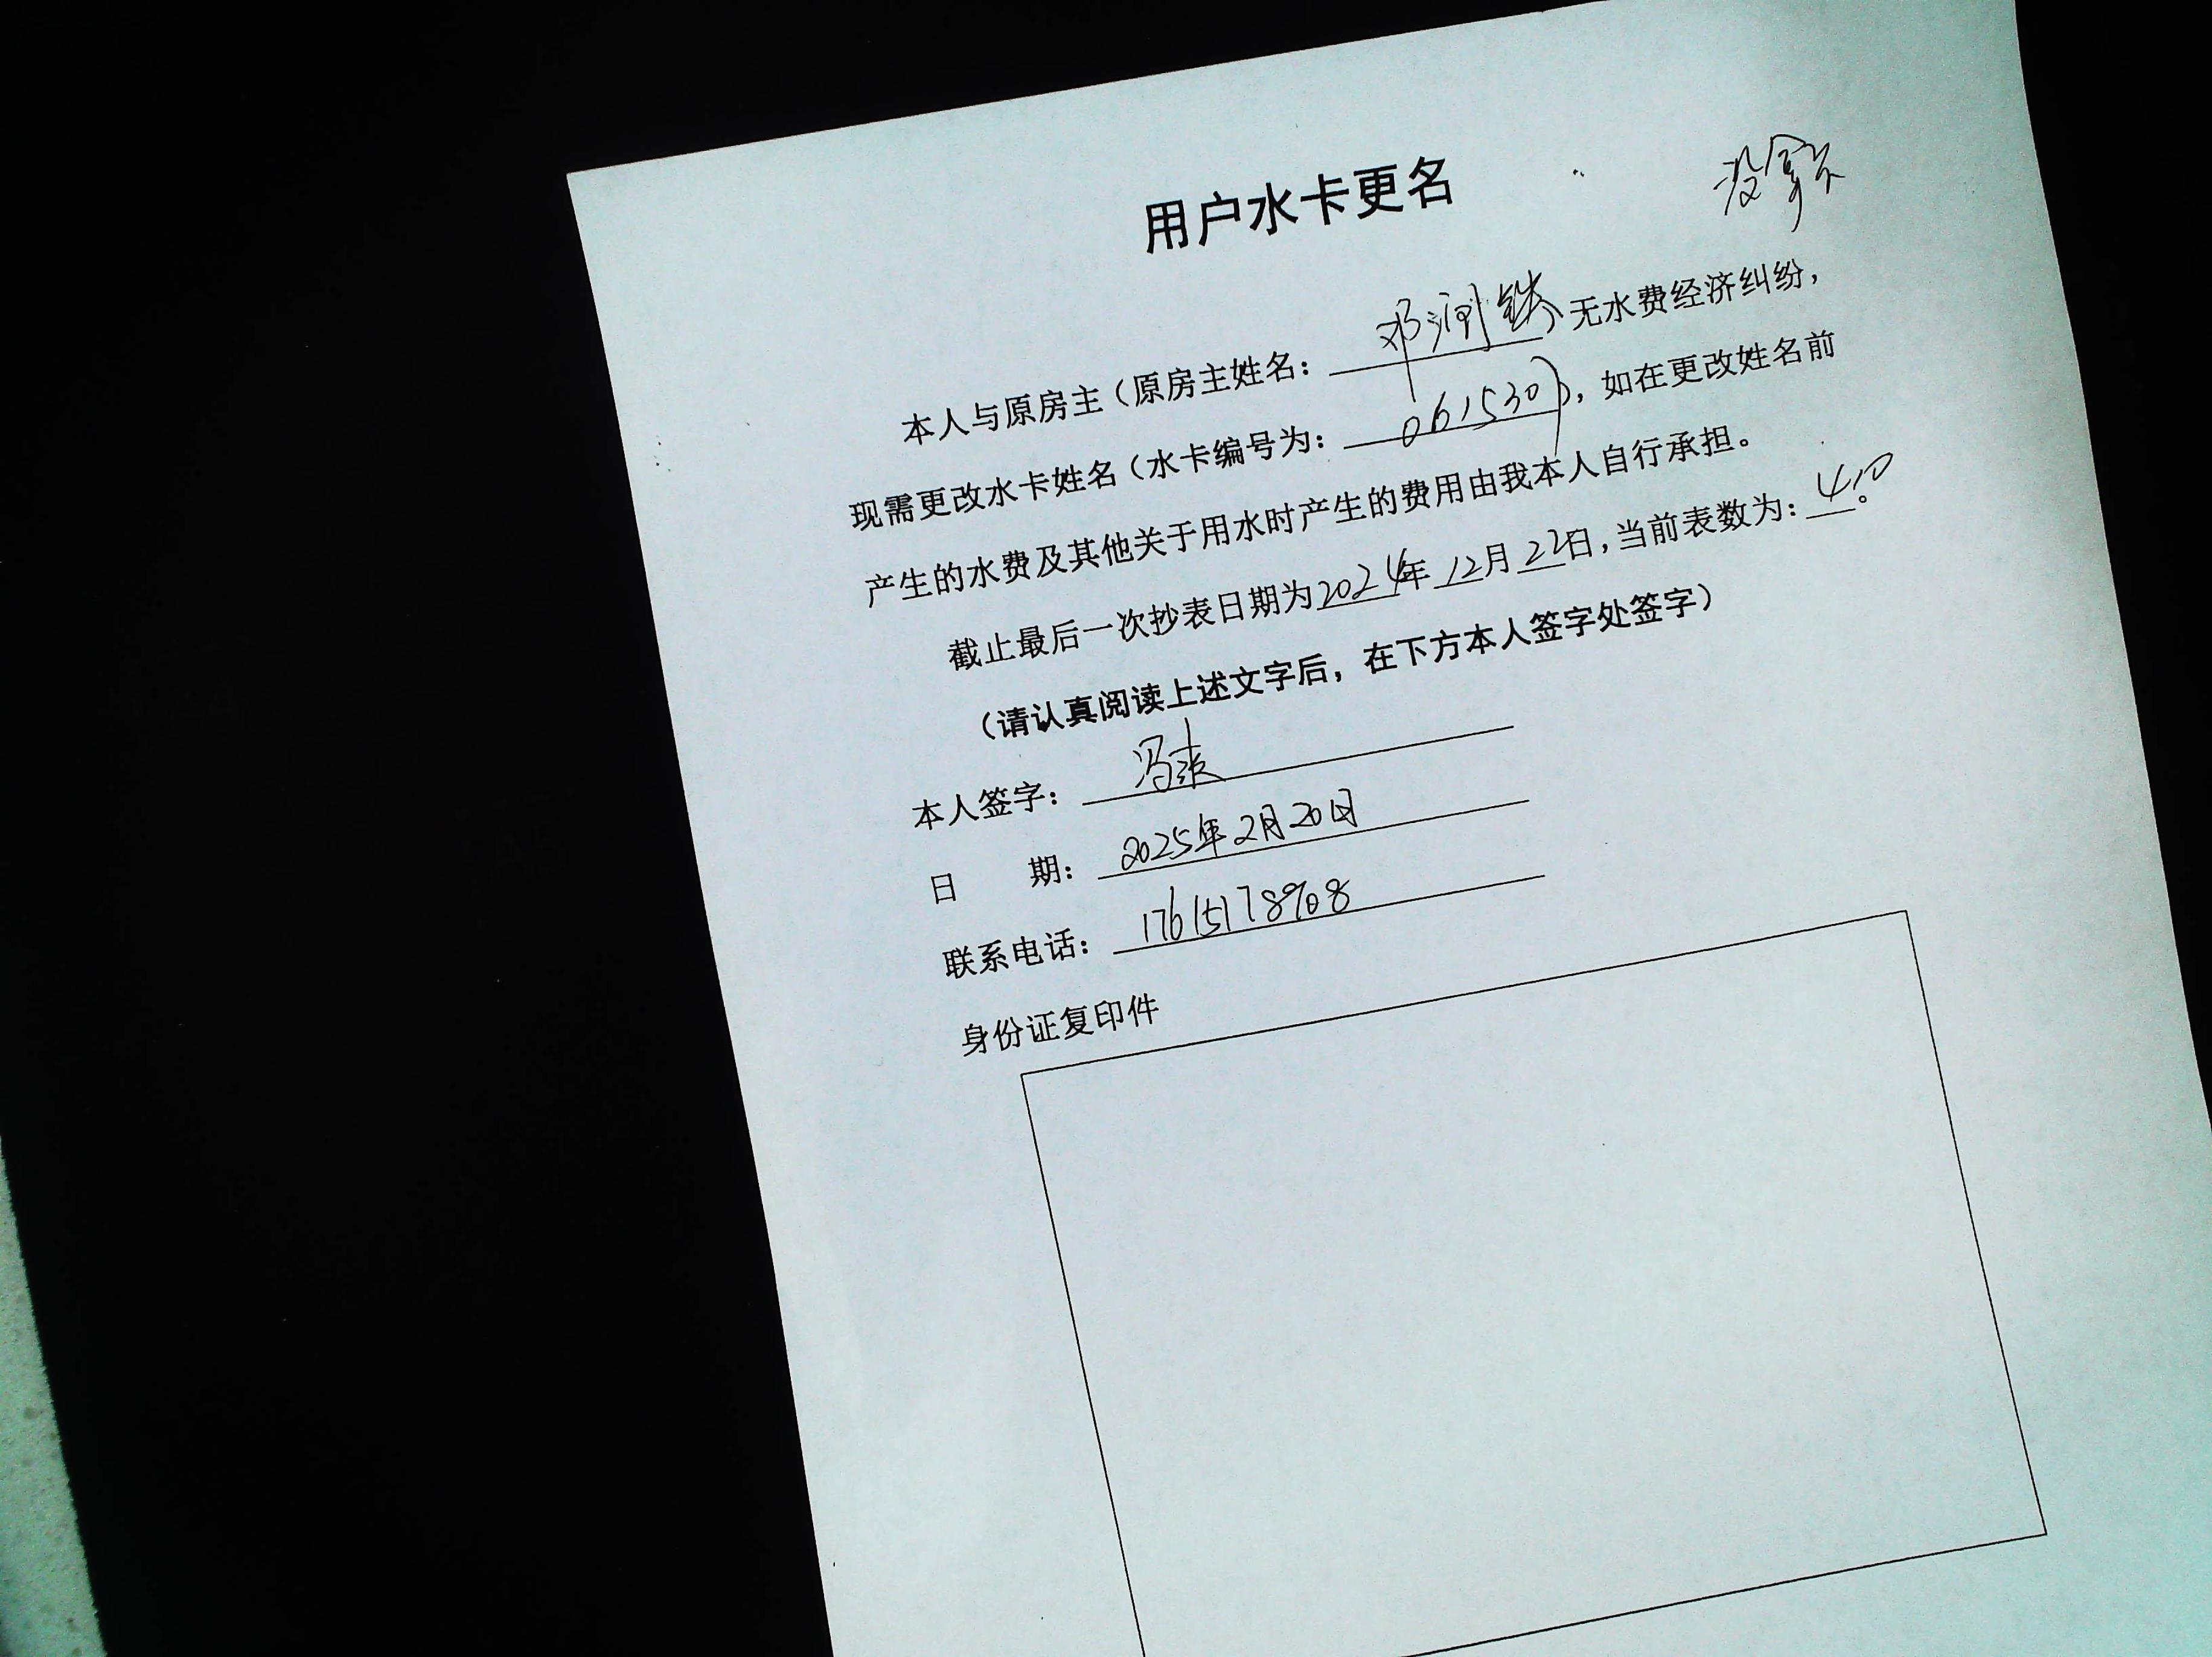 用户水卡更名
没拿卡
本人与原房主（原房主姓名：邓润 无水费经济纠纷，
现需更改水卡姓名（水卡编号为：061530），如在更改姓名前
产生的水费及其他关于用水时产生的费用由我本人自行承担。
截止最后一次抄表日期为2024年12月22日，当前表数为：410。
（请认真阅读上述文字后，在下方本人签字处签字）
本人签字：冯
日 期：2025年2月20日
联系电话：17615178908
身份证复印件